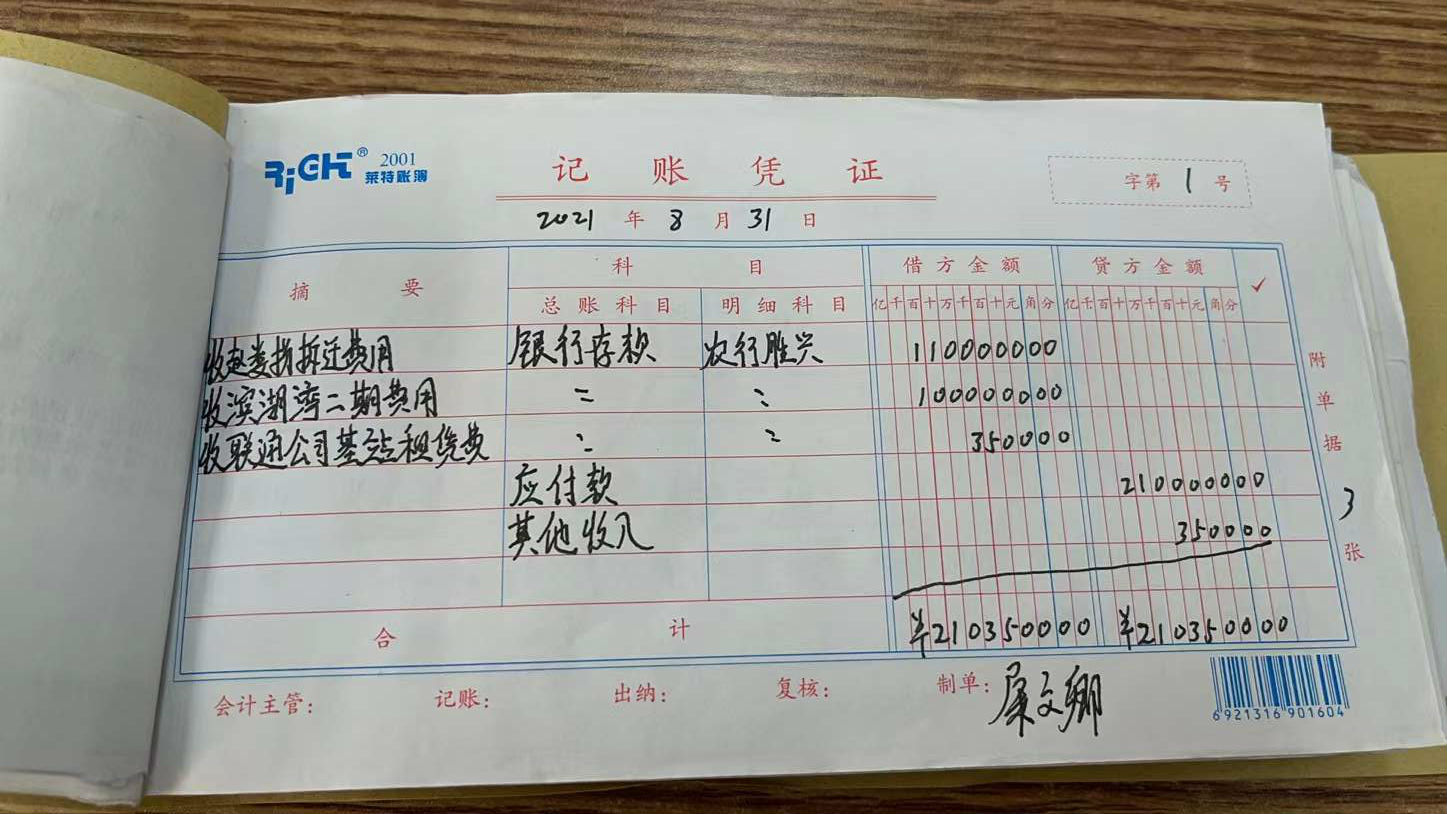 RiGHT® 2001
莱特账簿
记账凭证
字第 1 号
2021 年 8 月 31 日
摘要 科目 借方金额 贷方金额 ✓
总账科目 明细科目 亿千百十万千百十元角分 亿千百十万千百十元角分
收赵娄损拆迁费用 银行存款 农行胜兴 110000000
收滨湖湾二期费用 〃 〃 100000000
收联通公司基站租赁费 〃 〃 350000
应付款 210000000
其他收入 350000
合计 ¥210350000 ¥210350000
附单据 3 张
会计主管: 记账: 出纳: 复核: 制单: 屈文卿
6 921316 901604